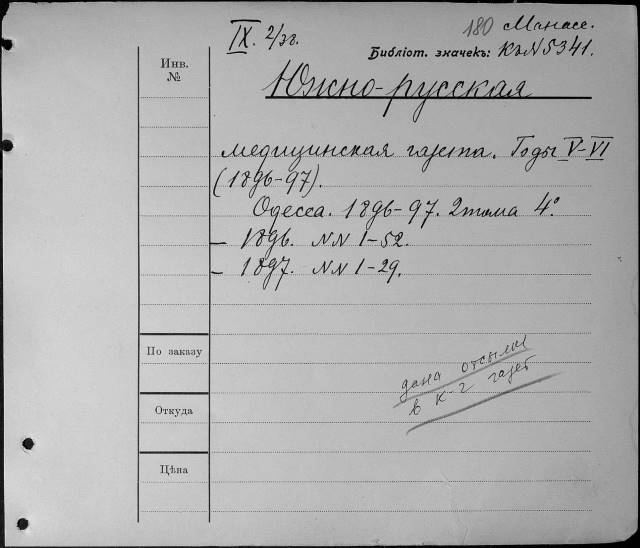 IX. 2/3г. 180 Манасе.
Библіот. значекъ: КъN5341.
Инв.
№
Южно-русская
медицинская газета. Годы V-VI
(1896-97).
Одесса. 1896-97. 2 тома 4°.
— 1896. NN 1-52.
— 1897. NN 1-29.
По заказу
дана отсылка
в к-г газет
Откуда
Цѣна